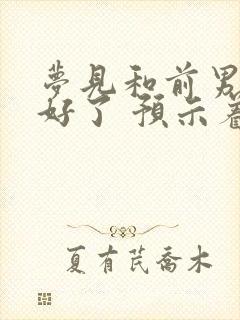 夢見和前男
好了 預示着
夏有芪喬木